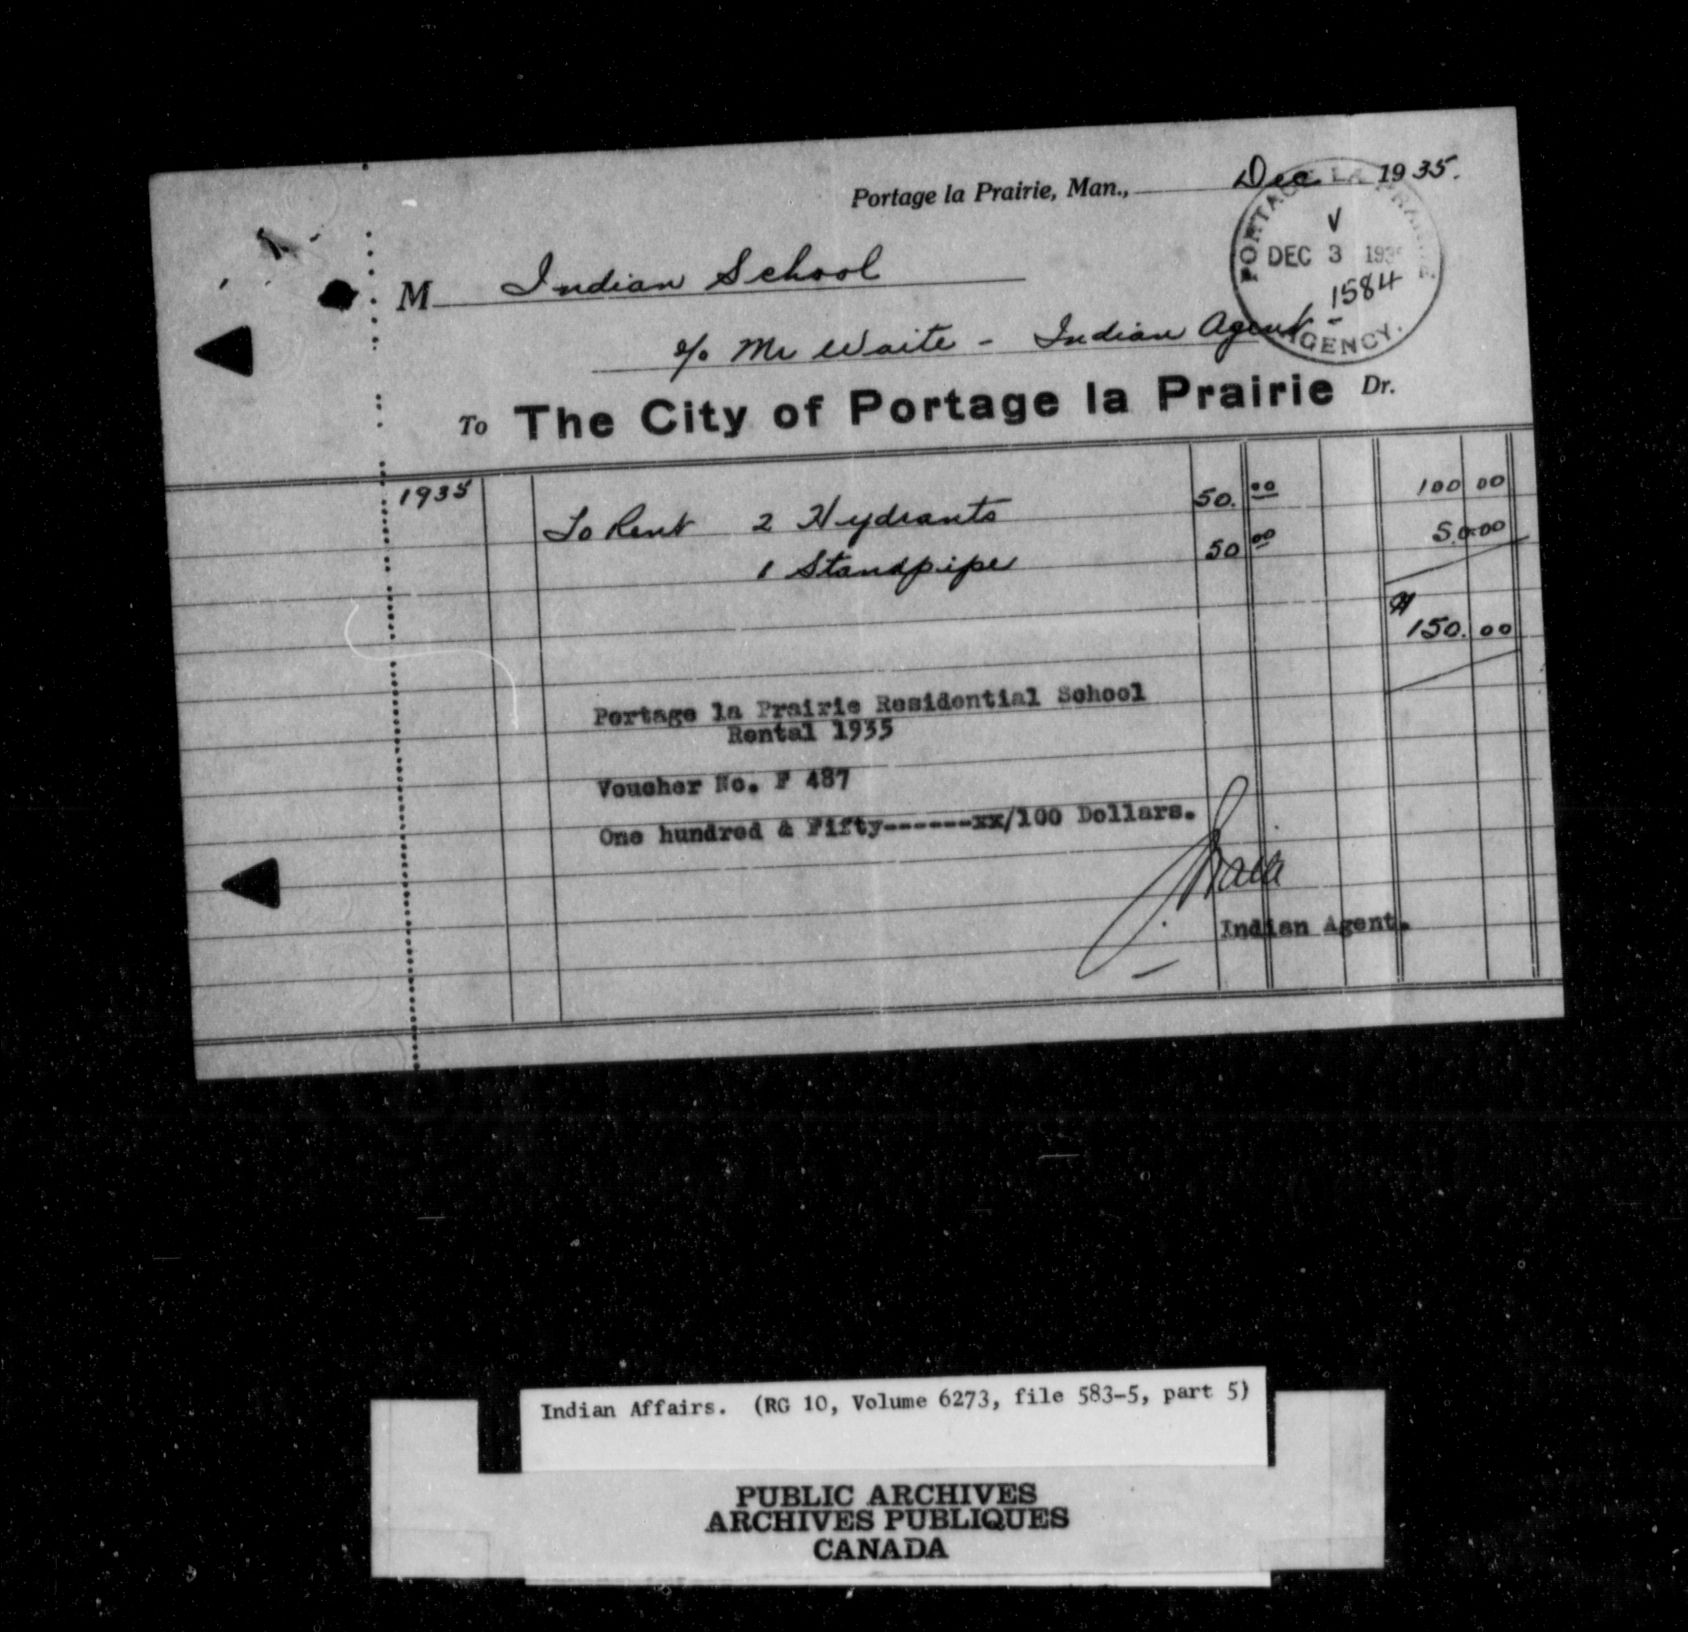 Portage la Prairie, Man., Dec 1935.
PORTAGE LA PRAIRIE
V
DEC 3 193
1584
AGENCY.
M Indian School
c/o Mr Waite - Indian Agent -
To The City of Portage la Prairie Dr.
1935 To Rent 2 Hydrants 50.00 100 00
1 Standpipe 50 00 50.00
150.00
Portage la Prairie Residential School
Rental 1935
Voucher No. F 487
One hundred & Fifty-------xx/100 Dollars.
Indian Agent.
Indian Affairs. (RG 10, Volume 6273, file 583-5, part 5)
PUBLIC ARCHIVES
ARCHIVES PUBLIQUES
CANADA